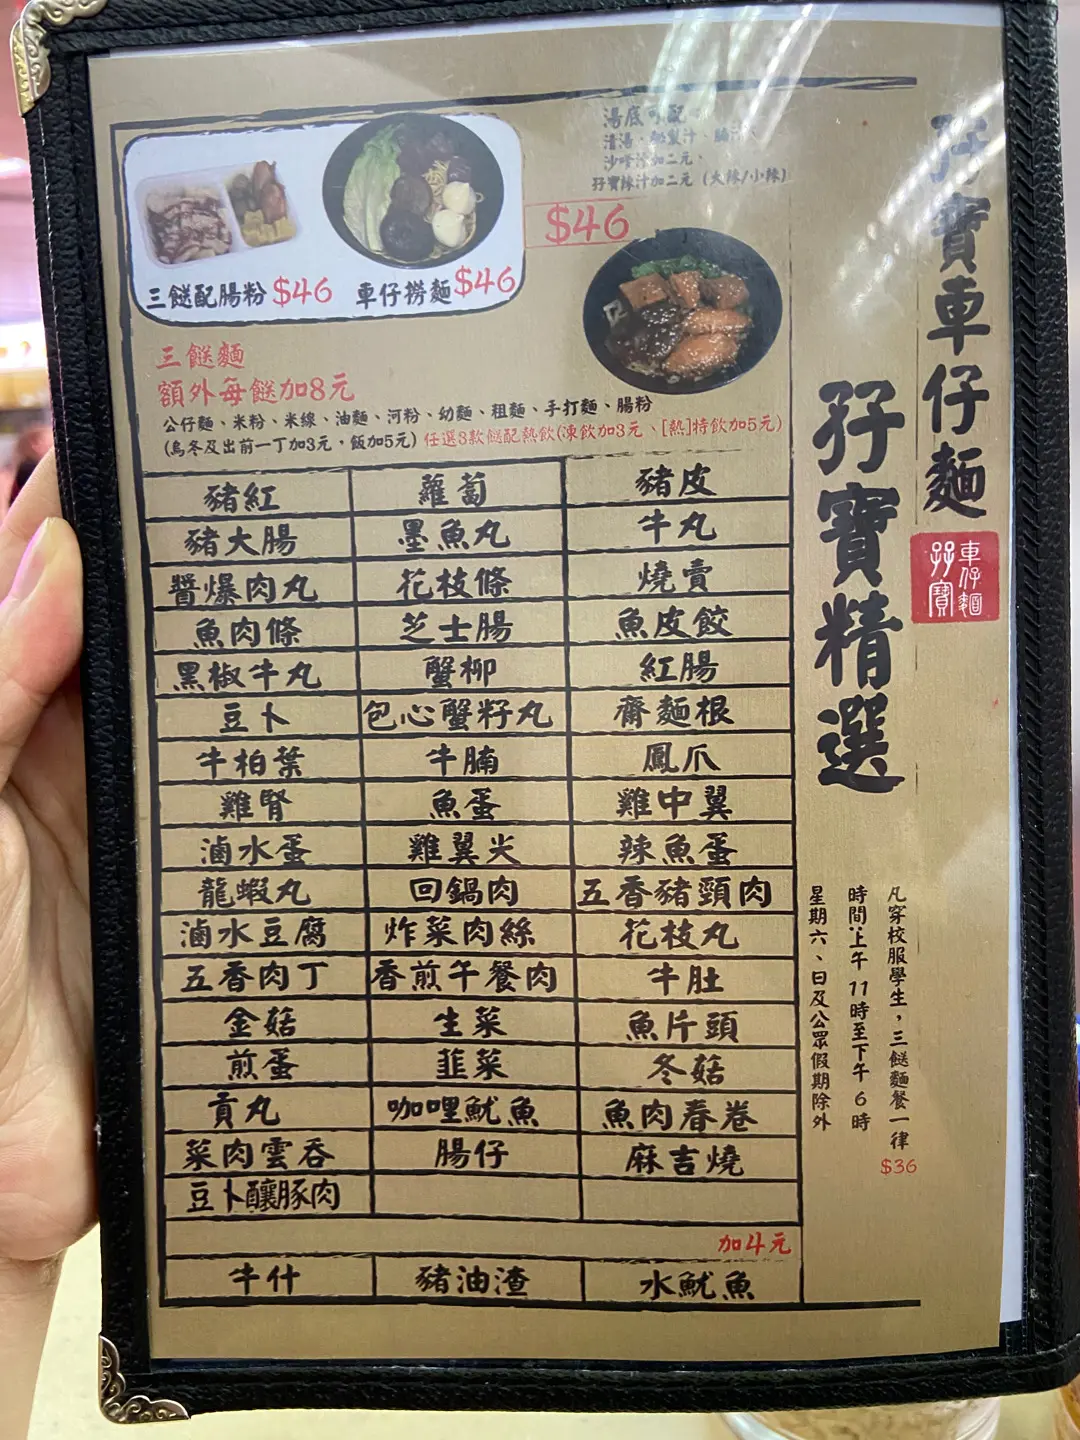 孖寶車仔麵
孖寶精選
車仔麵
孖寶
湯底可配
清湯、秘製汁、腩汁、
沙嗲汁加二元、
孖寶辣汁加二元（大辣/小辣）
$46
三餸配腸粉 $46 車仔撈麵 $46
三餸麵
額外每餸加8元
公仔麵、米粉、米線、油麵、河粉、幼麵、粗麵、手打麵、腸粉
(烏冬及出前一丁加3元，飯加5元) 任選3款餸配熱飲(凍飲加3元、[熱]特飲加5元)
豬紅 蘿蔔 豬皮
豬大腸 墨魚丸 牛丸
醬爆肉丸 花枝條 燒賣
魚肉條 芝士腸 魚皮餃
黑椒牛丸 蟹柳 紅腸
豆卜 包心蟹籽丸 齋麵根
牛柏葉 牛腩 鳳爪
雞腎 魚蛋 雞中翼
滷水蛋 雞翼尖 辣魚蛋
龍蝦丸 回鍋肉 五香豬頸肉
滷水豆腐 炸菜肉絲 花枝丸
五香肉丁 香煎午餐肉 牛肚
金菇 生菜 魚片頭
煎蛋 韭菜 冬菇
貢丸 咖哩魷魚 魚肉春卷
菜肉雲吞 腸仔 麻吉燒
豆卜釀豚肉
加4元
牛什 豬油渣 水魷魚
凡穿校服學生，三餸麵餐一律
$36
時間：上午11時至下午6時
星期六、日及公眾假期除外